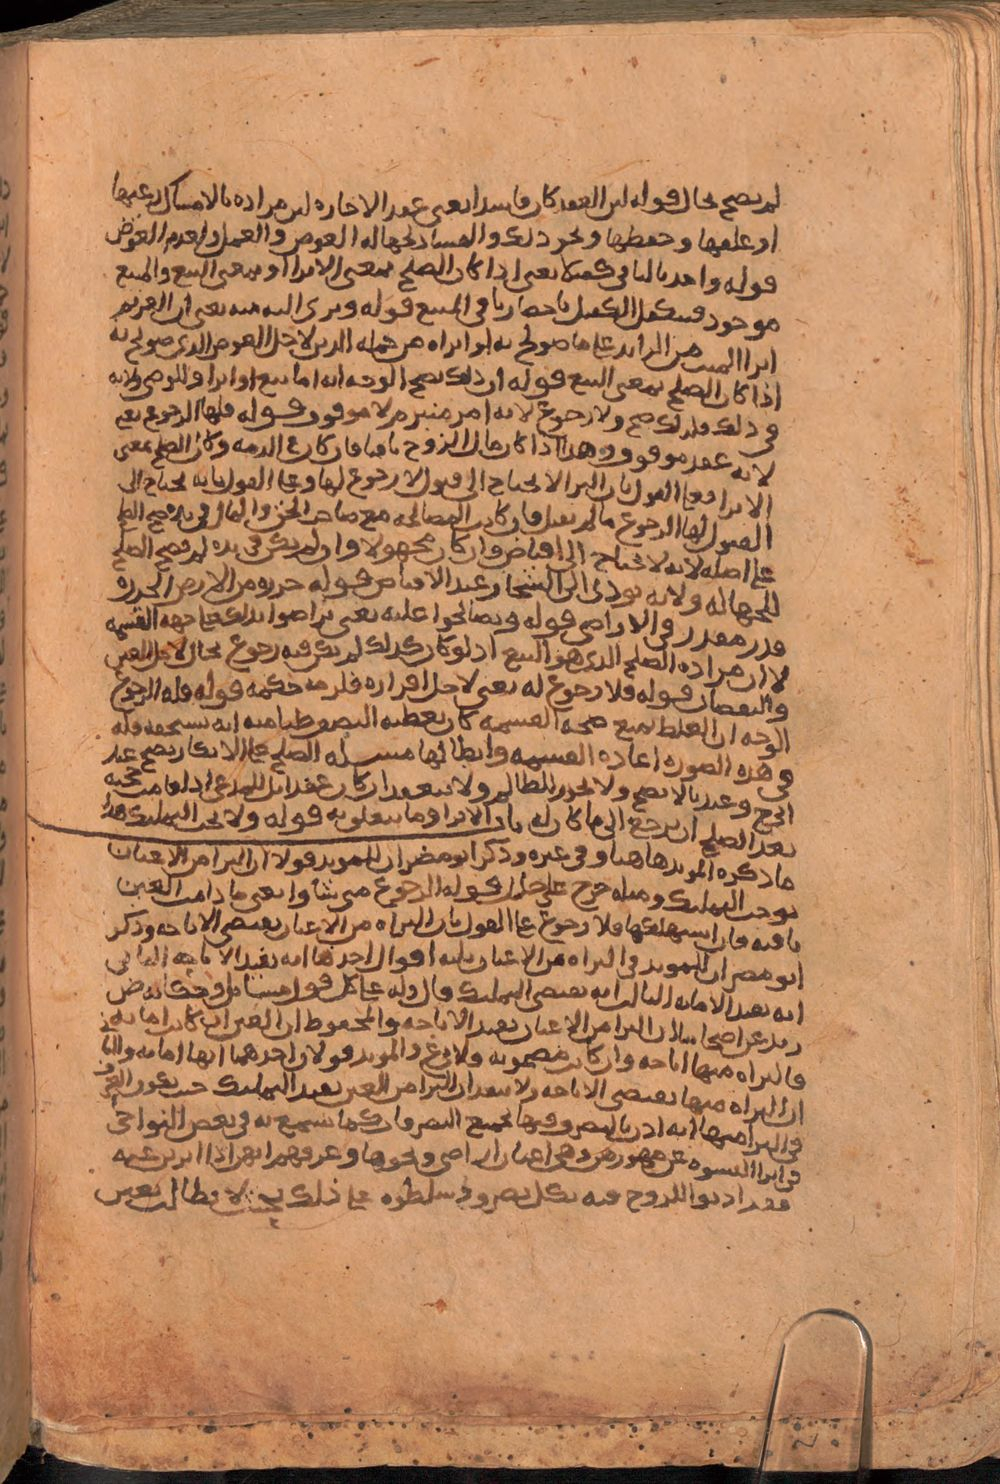 لم يصح بحال قوله لان العقد كان فاسدا يعني عقد الاجارة لان مراده بالامساك رعيها
او علفها وحفظها ونحو ذلك والفساد لجهالة العوض والعمل ولعدم العوض
قوله واحدنا لباقي كفيلا يعني اذا كان الصلح بمعنى الابرا او بمعنى البيع والمبيع
موجود فيتكفل الكفيل باحضار باقي المبيع قوله وبرى اليه منه يعني ان الغريم
ابرا الميت من الزايد على ما صولح به او ابراه من جملة الدين لاجل العوض الذي صولح به
اذا كان الصلح بمعنى البيع قوله ان ذلك يصح الوجه انه اما بيع او ابرا وللوصي ولاية
في ذلك فلذلك صح ولا رجوع لانه امر منبرم لا موقوف قوله فلها الرجوع يعني
لانه عقد موقوف وهذا اذا كان مال الزوج باقيا فان كان في الذمة وكان الصلح بمعنى
الابرا فعلى القول بان البرا لا يحتاج الى قبول لا رجوع لها وعلى القول بانه يحتاج الى
القبول لها الرجوع ما لم يقبل فان كانت المصالحة مع صاحب الحق والمال في يده صح الصلح
على اصله لانه لا يحتاج الى اقباض وان كان مجهولا وان لم يكن في يده لم يصح الصلح
للجهالة ولانه يودي الى التشجار عند الاقباض قوله حربه من الارض الحربه
قدر مقدر في الاراضي قوله وتصالحوا عليه يعني تراضوا بذلك على جهة القسمة
لا ان مراده الصلح الذي هو البيع اذ لو كان كذلك لم يكن فيه رجوع بحال لاجل الغبن
والنقصان قوله فلا رجوع له يعني لاجل اقراره فلزمه حكمه قوله فله الرجوع
الوجه ان الغلط يمنع صحة القسمة كان يعطيه النصف ظنا منه انه يستحقه فله
في هذه الصورة اعادة القسمة وابطالها مسئلة الصلح على الانكار يصح عند
وعندنا لا يصح ولا يجوز المطالبة ولا ينعقد ان كان عقدا بل للمدعي اذا قامت بينة
بعد الصلح ان يرجع الى ما كان له بان الابرا وما يتعلق به قوله ولا يجب التمليك هذا
ما ذكره المويد هاهنا وفي غيره وذكر ابو مضر ان للمويد قولا ان البرا من الاعيان
يوجب التمليك ومثله خرج علي خليل قوله الرجوع متى شاوا يعني ما دامت العين
باقية فان استهلكها فلا رجوع على القول بان البراه من الاعيان يقتضي الاباحة وذكر
ابو مضر ان للمويد في البراه من الاعيان ثلثة اقوال احدها انه يفيد الاباحة الثاني
انه يفيد الامانة الثالث انه يقتضي التمليك قال وله على كل قول مسائل وحكا بعض
عن اصحابنا ان البرا من الاعيان يفيد الاباحة والمحفوظ ان العين ان كانت امانة
فالبراه منها اباحة وان كانت مضمونة وللمويد قولان احدهما انها امانة والثاني
ان البراه منها يقتضي الاباحة ولا يبعد ان البرا من العين يفيد التمليك حيث يكون العرف
في البرا منها انه اذن بالتصرف فيها بجميع التصرفات كما يسمع به في بعض النواحي
في ابرا النسوة عن مهورهن وهي اعيان اراضي ونحوها وعرفهم انهن اذا ابرين عنه
فقد اذنوا للزوج فيه بكل تصرف وسلطوه على ذلك بحيث لا يطالب بعين